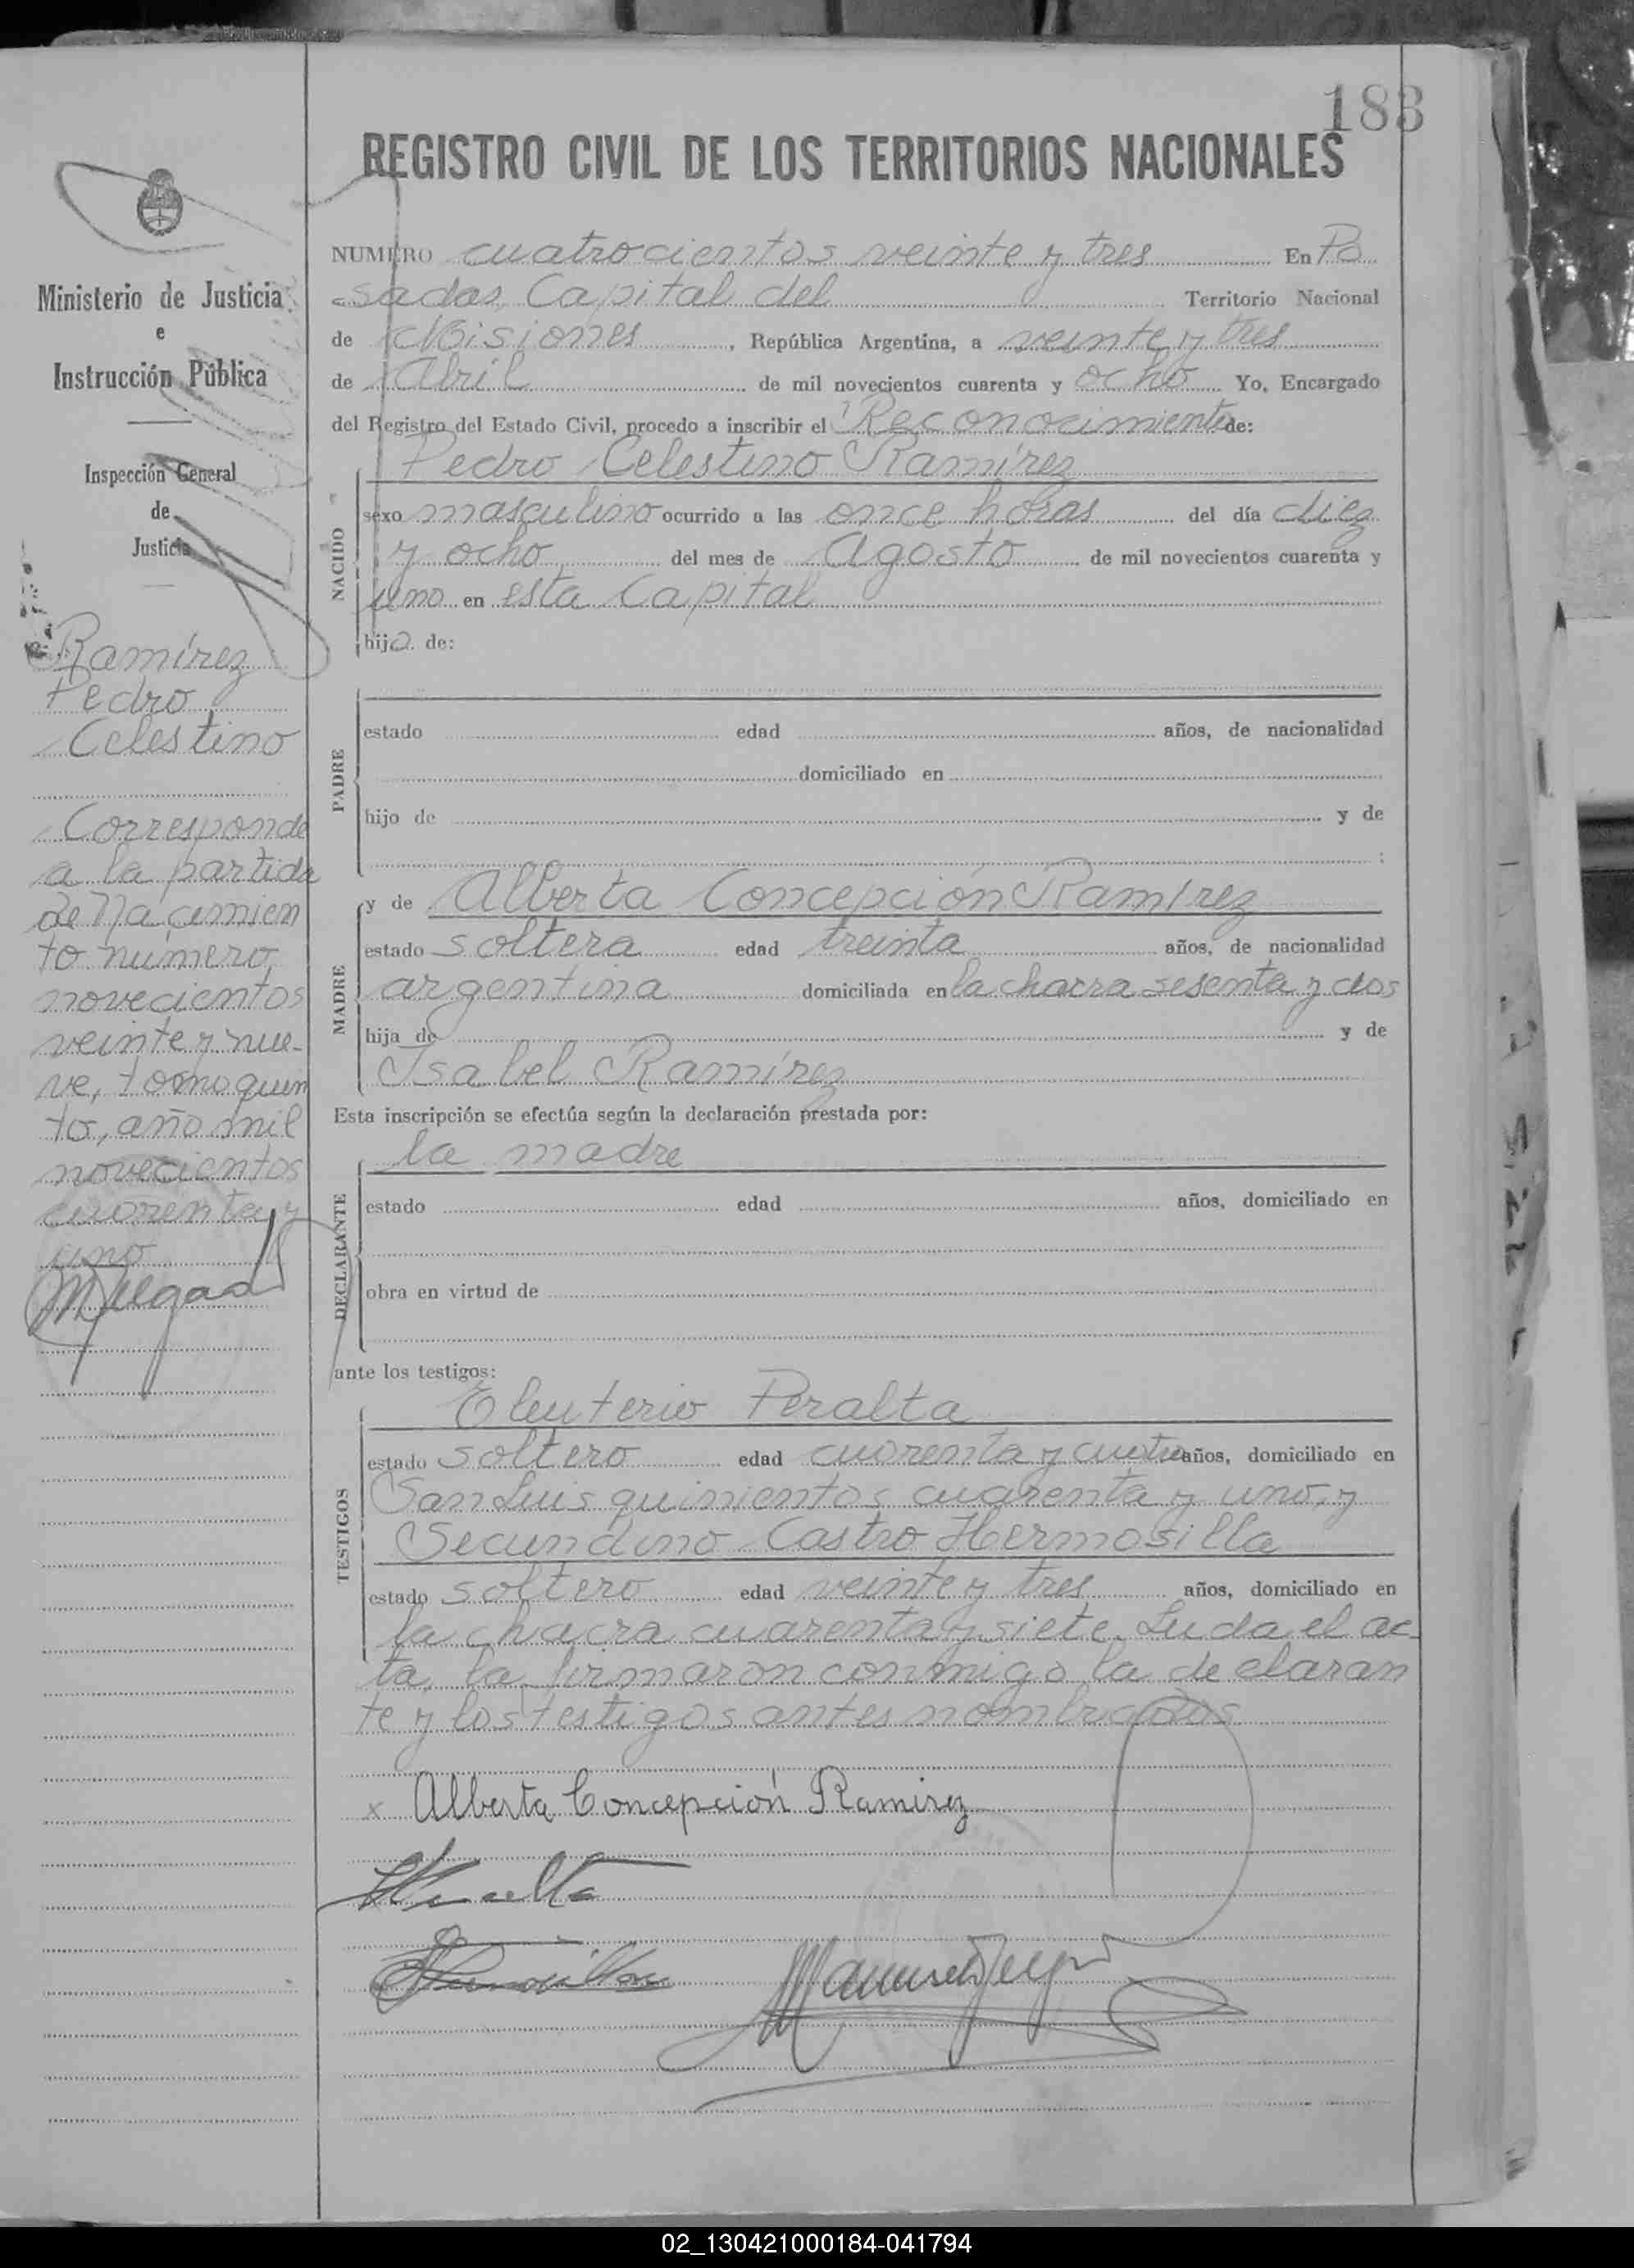 183
REGISTRO CIVIL DE LOS TERRITORIOS NACIONALES
Ministerio de Justicia
e
Instrucción Pública
Inspección General
de
Justicia
Ramírez
Pedro
Celestino
Corresponde
a la partida
de Nacimien
to número
novecientos
veinte y nue-
ve, tomo quin
to, año mil
novecientos
cuarenta y
uno
NUMERO cuatrocientos veinte y tres En Po
sadas, Capital del Territorio Nacional
de Misiones, República Argentina, a veinte y tres
de Abril de mil novecientos cuarenta y ocho Yo, Encargado
del Registro del Estado Civil, procedo a inscribir el Reconocimiento de:
Pedro Celestino Ramírez
NACIDO
sexo masculino ocurrido a las once horas del día diez
y ocho del mes de Agosto de mil novecientos cuarenta y
uno en esta Capital
hijo de:
PADRE
estado edad años, de nacionalidad
domiciliado en
hijo de y de
:
MADRE
y de Alberta Concepción Ramírez
estado soltera edad treinta años, de nacionalidad
argentina domiciliada en la chacra sesenta y dos
hija de y de
Isabel Ramírez
Esta inscripción se efectúa según la declaración prestada por:
la madre
DECLARANTE
estado edad años, domiciliado en
obra en virtud de
ante los testigos:
TESTIGOS
Eleuterio Peralta
estado soltero edad cuarenta y cuatro años, domiciliado en
San Luis quinientos cuarenta y uno, y
Secundino Castro Hermosilla
estado soltero edad veinte y tres años, domiciliado en
la chacra cuarenta y siete. Leida el ac-
ta, la firmaron conmigo la declaran
te y los testigos antes nombrados
x Alberta Concepción Ramirez
02_130421000184-041794